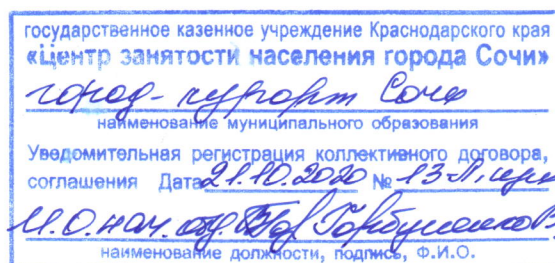 государственное казенное учреждение Краснодарского края
«Центр занятости населения города Сочи»
город-курорт Сочи
наименование муниципального образования
Уведомительная регистрация коллективного договора,
соглашения Дата 21.10.2020 № 13
И.О. нач. отд.
наименование должности, подпись, Ф.И.О.